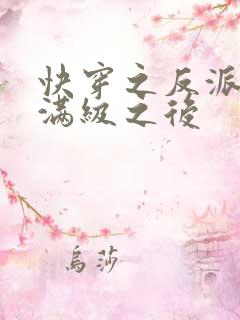 快穿之反派
滿級之後
烏莎